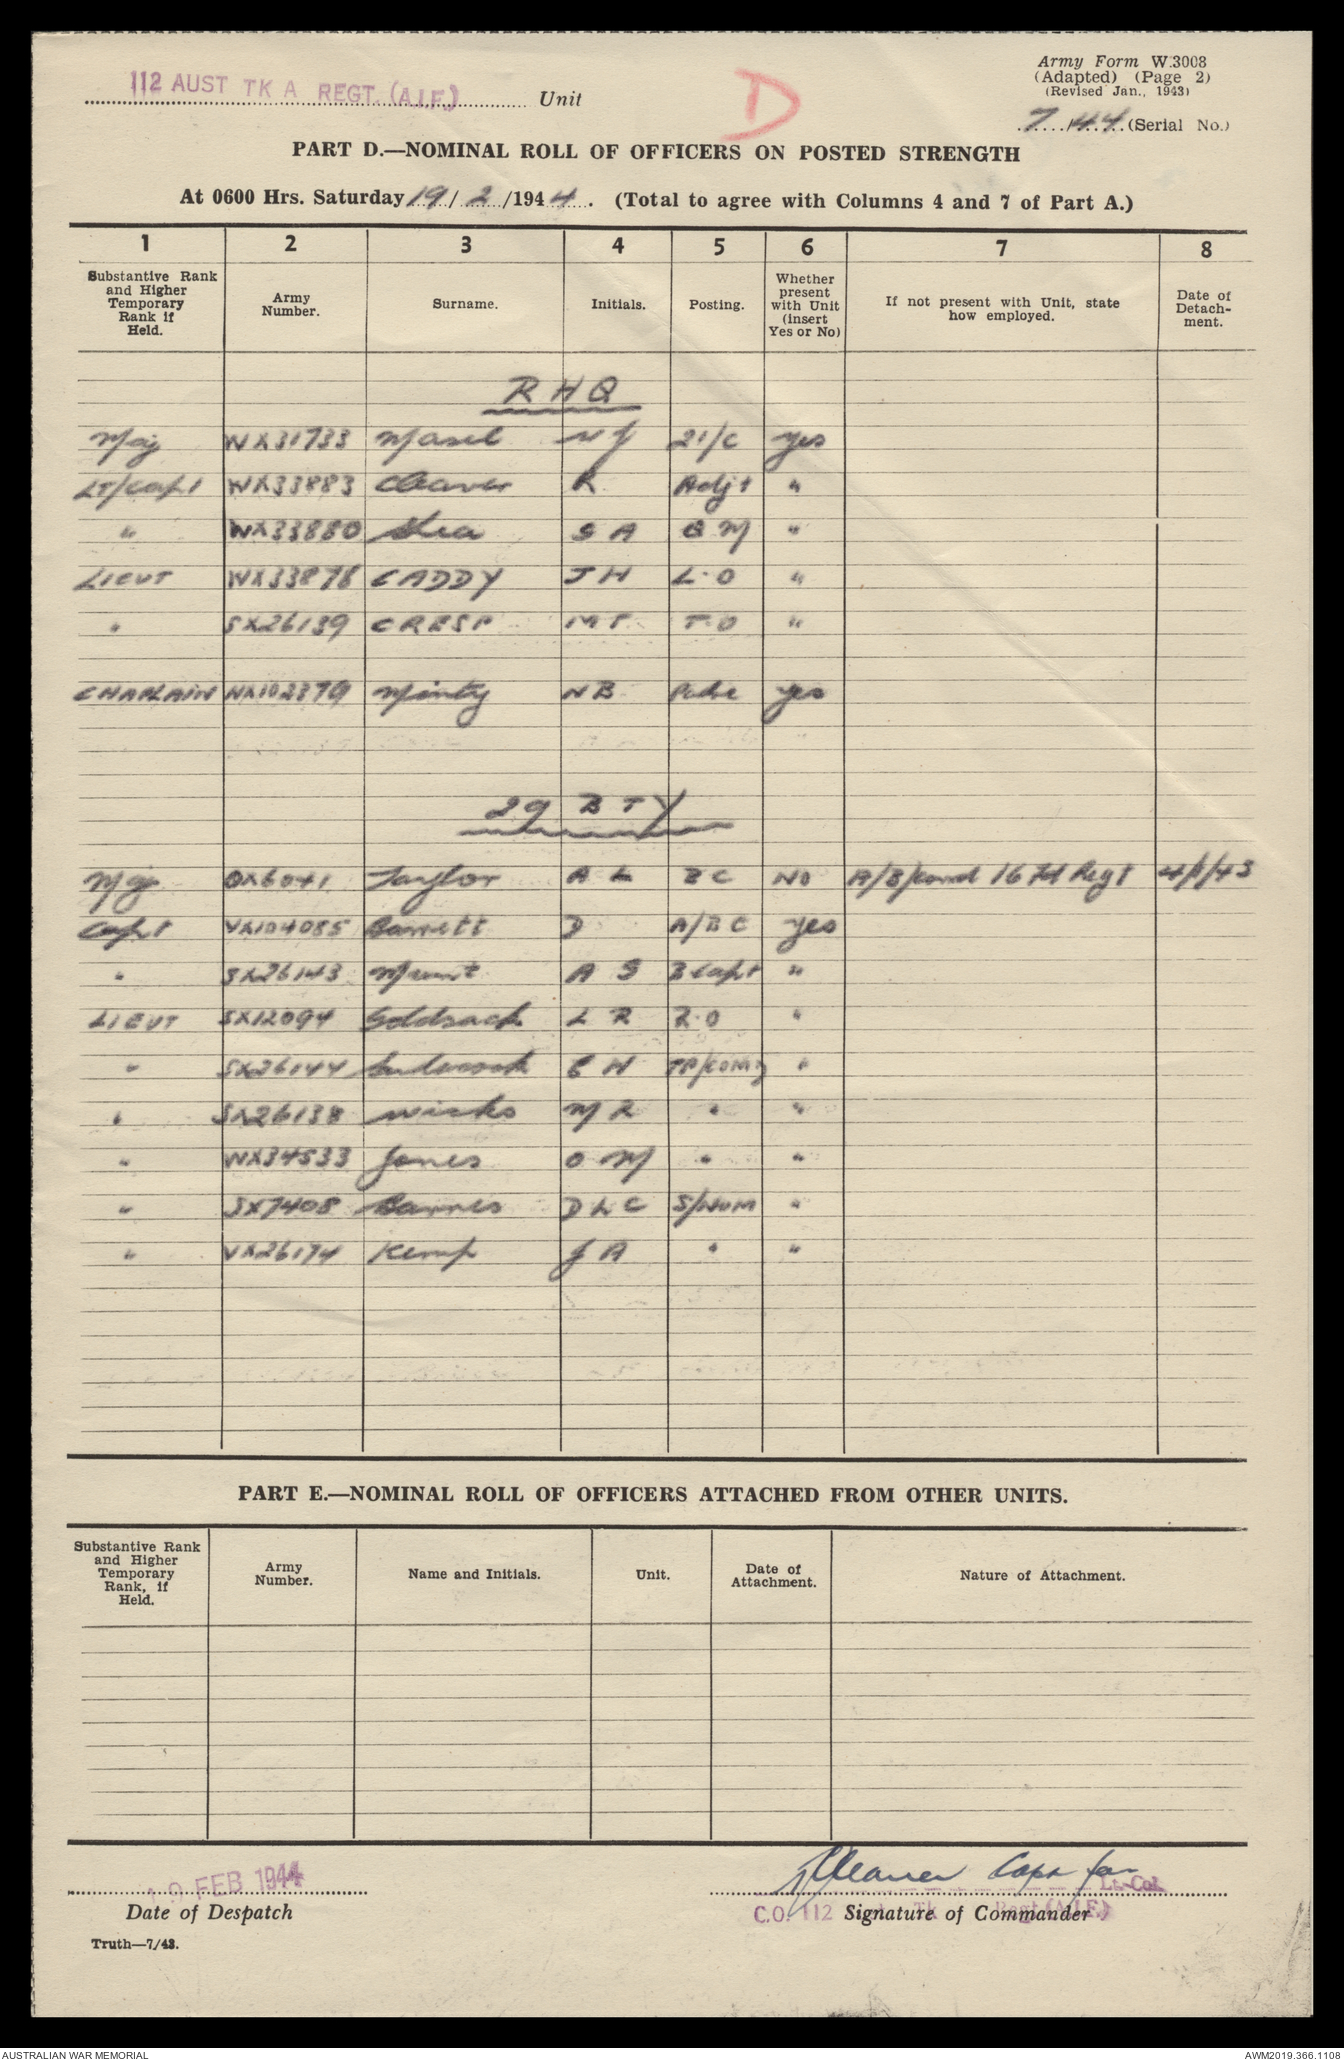 112 AUST TK A REGT. (A.I.F.) Unit
D
Army Form W.3008
(Adapted) (Page 2)
(Revised Jan., 1943)
7/44 (Serial No.)
PART D.—NOMINAL ROLL OF OFFICERS ON POSTED STRENGTH
At 0600 Hrs. Saturday 19/2/1944. (Total to agree with Columns 4 and 7 of Part A.)
1 2 3 4 5 6 7 8
Substantive Rank and Higher Temporary Rank if Held. Army Number. Surname. Initials. Posting. Whether present with Unit (insert Yes or No) If not present with Unit, state how employed. Date of Detach-ment.
RHQ
Maj WX31733 Masel N J 2I/C Yes
Lt/Capt WX33883 Cleaver R Adjt "
" WX33880 Shea S A QM "
LIEUT WX33878 CADDY J H L.O "
" SX26139 CRESP M T T.O "
CHAPLAIN NX102379 Minty N B Padre Yes
29 BTY
Maj DX6041 Taylor A L BC NO A/B/Comd 16 Fd Regt 4/1/43
Capt VX104085 Barrett D A/BC Yes
" SX26143 Munt A S B Capt "
LIEUT SX12094 Goldsack L R R.O "
" SX26144 E H TP/COMD "
" SX26138 Wicks M R " "
" WX34533 Jones O M " "
" SX7408 Barnes D L C S/NUM "
" VX26174 Kemp J A " "
PART E.—NOMINAL ROLL OF OFFICERS ATTACHED FROM OTHER UNITS.
Substantive Rank and Higher Temporary Rank, if Held. Army Number. Name and Initials. Unit. Date of Attachment. Nature of Attachment.
19 FEB 1944
RCleaver Capt for Lt-Col.
C.O. 112 Tk Regt (A.I.F.)
Date of Despatch Signature of Commander
Truth—7/43.
AUSTRALIAN WAR MEMORIAL AWM2019.366.1108